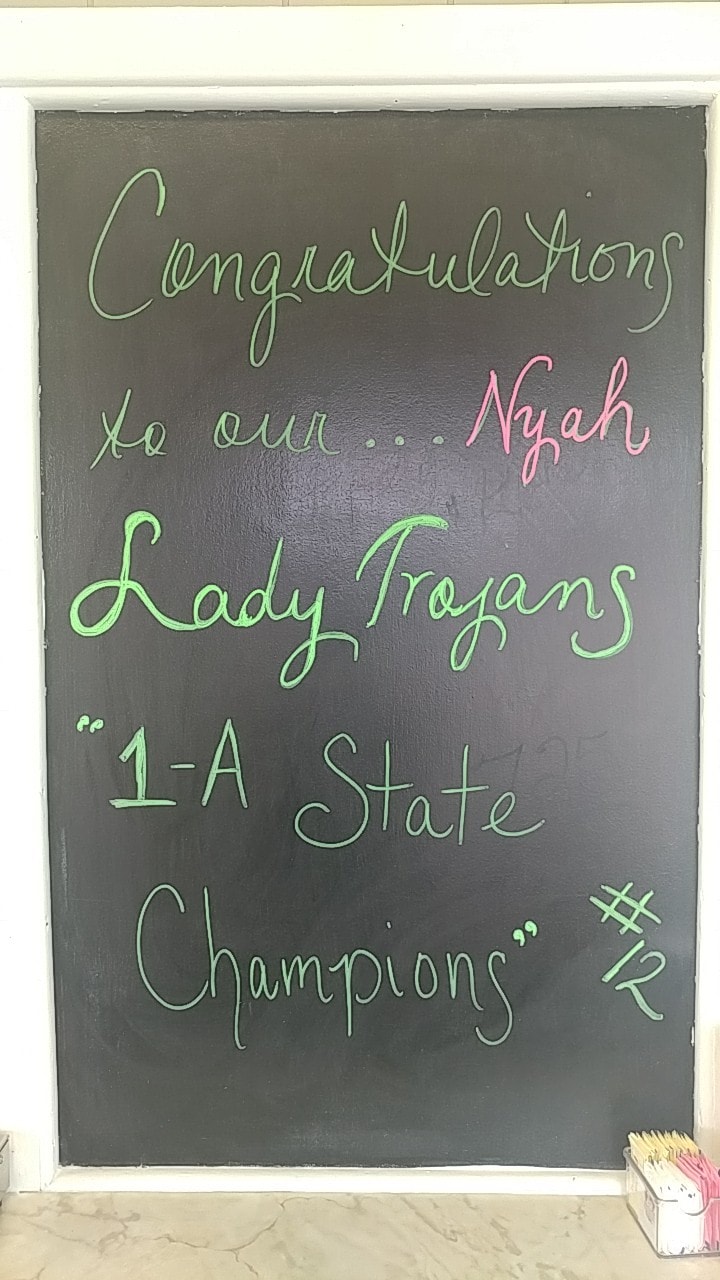 Congratulations
to our .... Nyah
Lady Trojans
"1-A State
Champions" #12